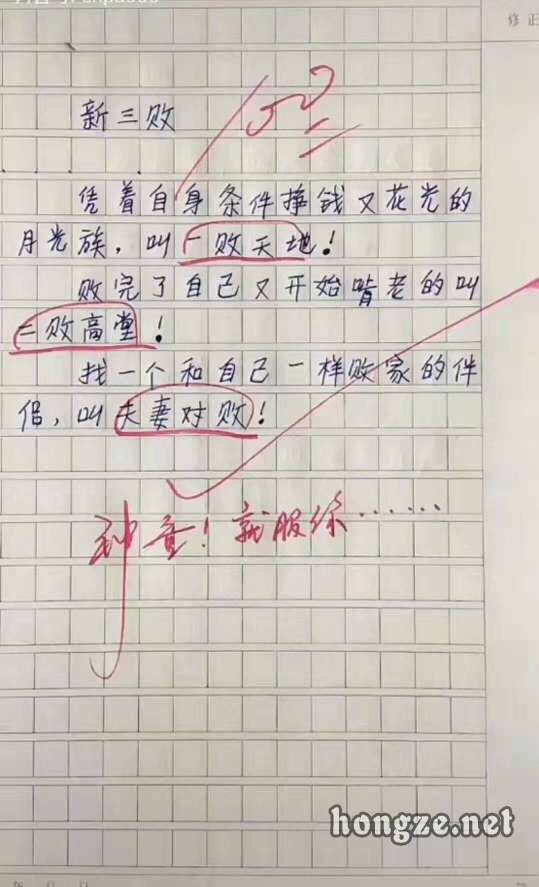 修正
新三败
100
凭着自身条件挣钱又花光的
月光族，叫一败天地！
败完了自己又开始啃老的叫
二败高堂！
找一个和自己一样败家的伴
侣，叫夫妻对败！
神童！就服你……
hongze.net